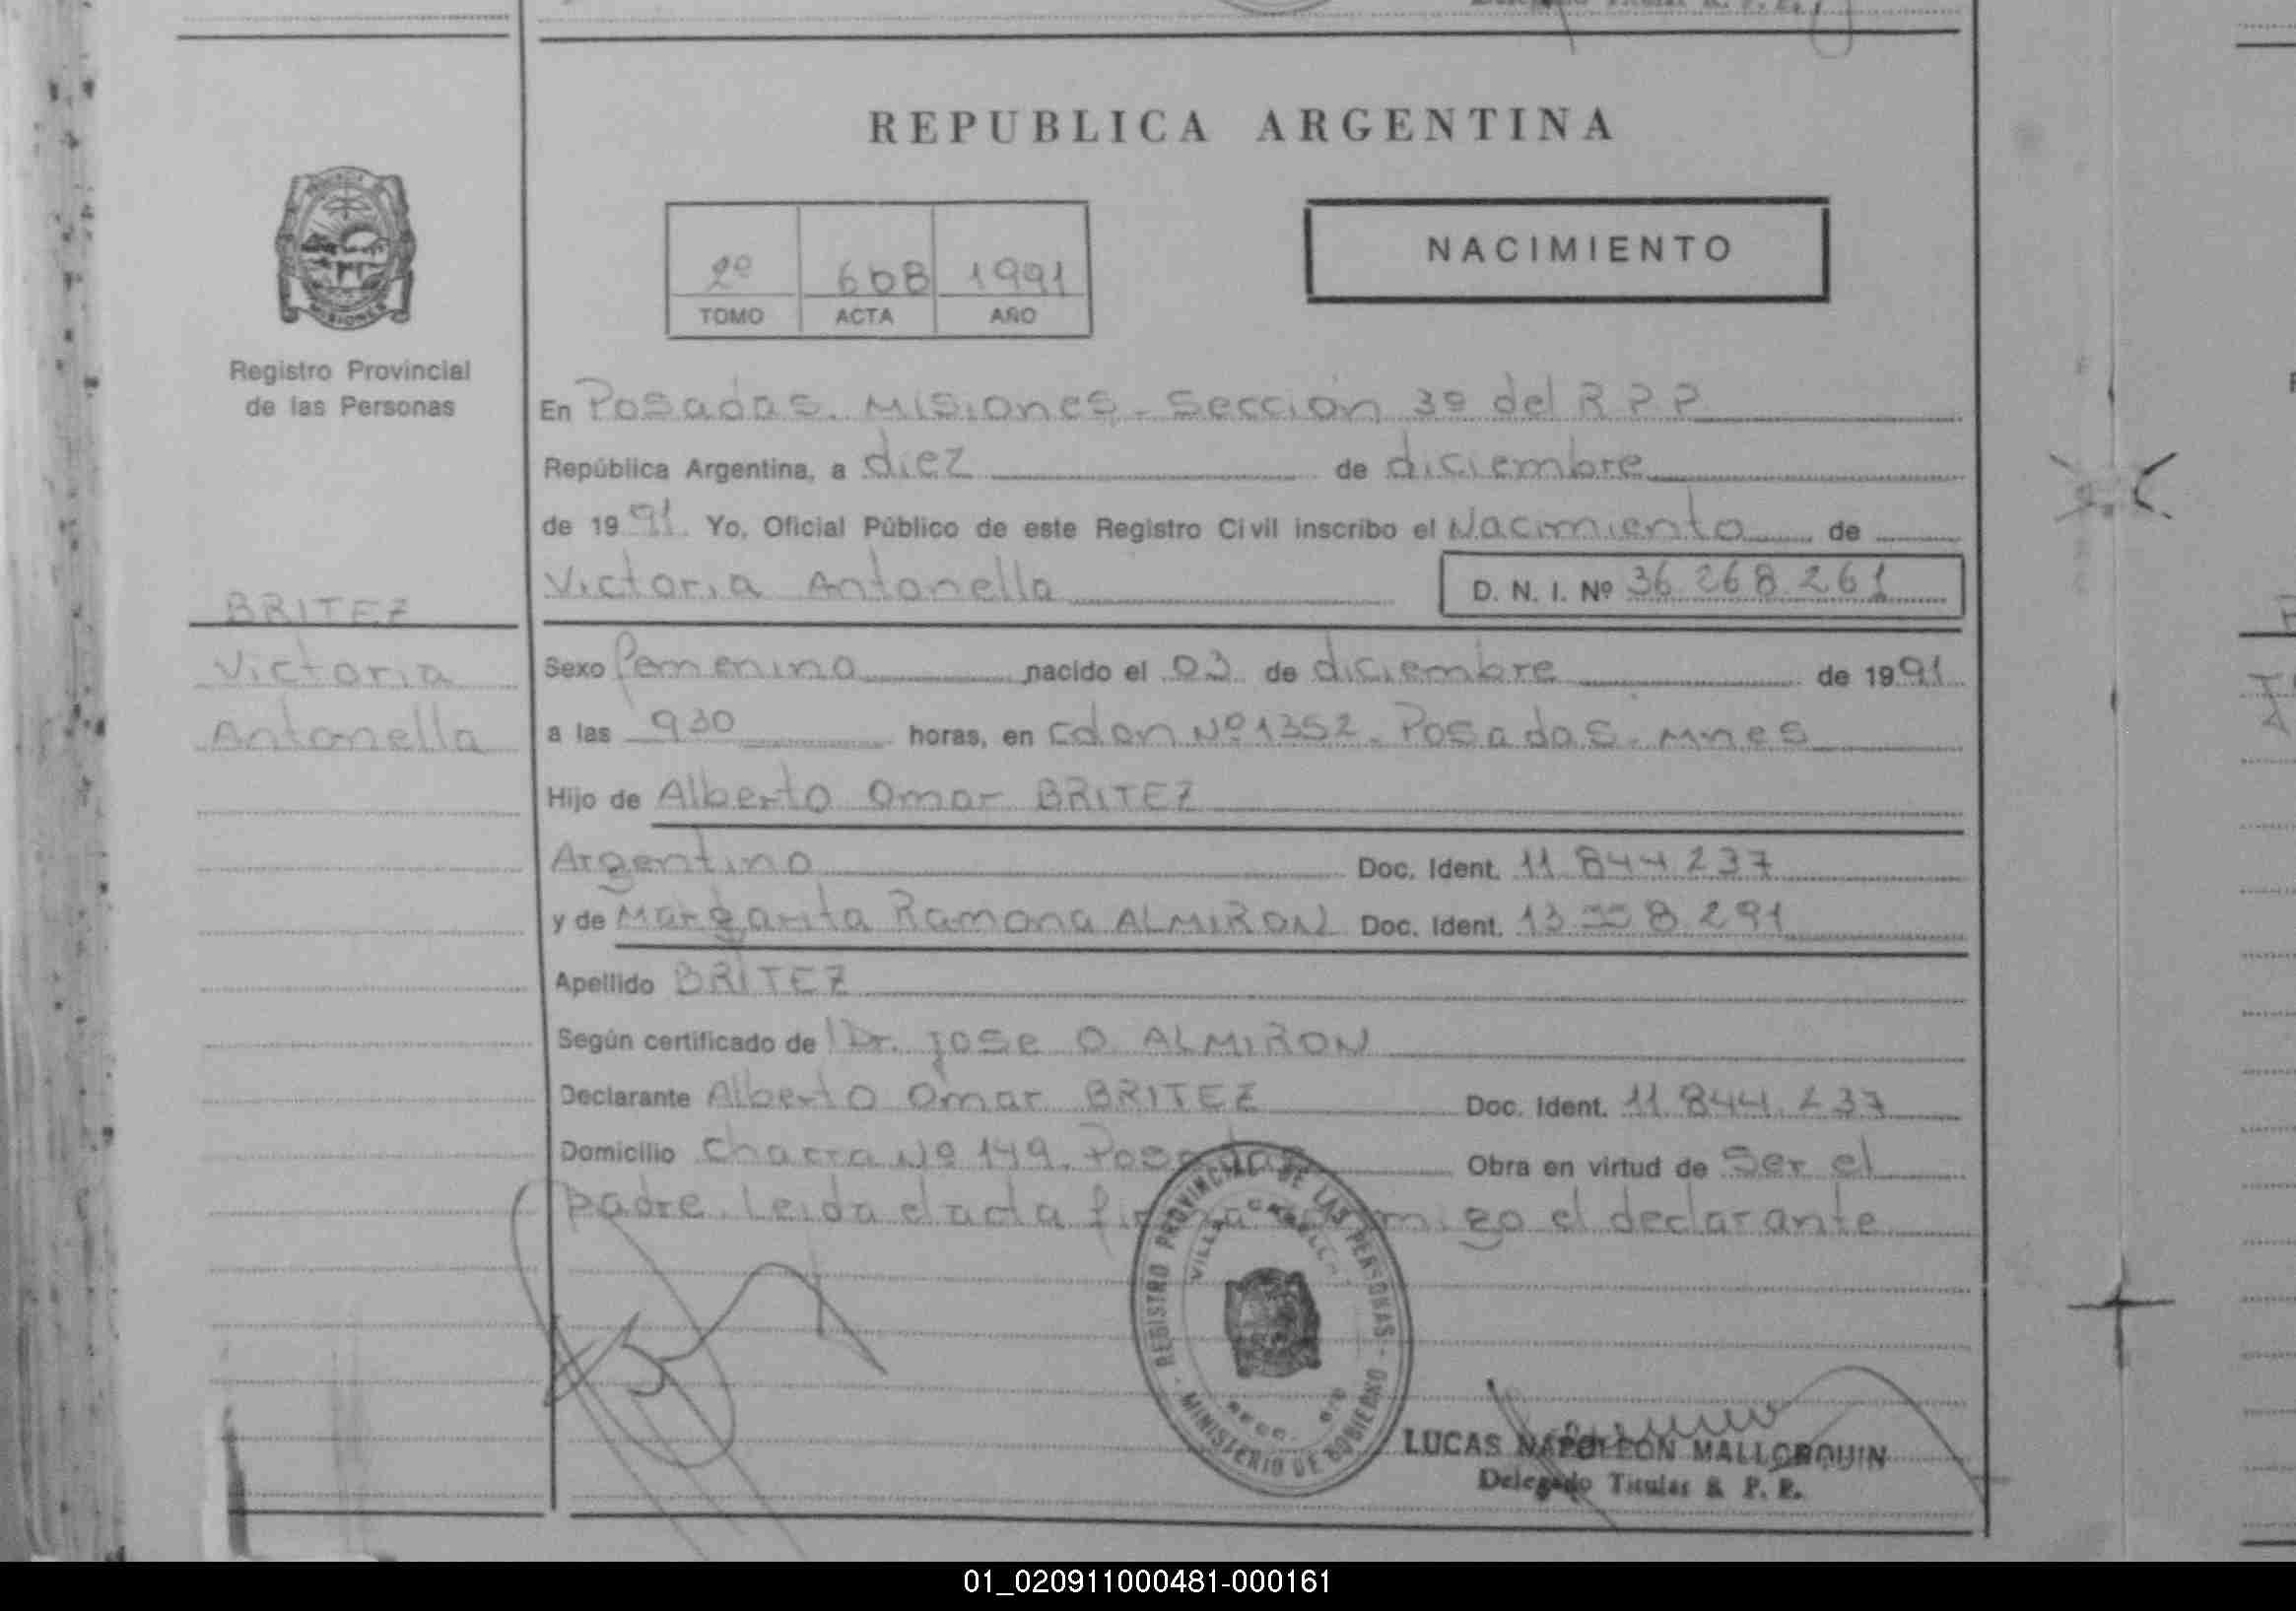 REPUBLICA ARGENTINA
NACIMIENTO
2º 608 1991
TOMO ACTA AÑO
MISIONES
Registro Provincial
de las Personas
BRITEZ
Victoria
Antonella
En Posadas. Misiones. Sección 3º del R P P
República Argentina, a diez de diciembre
de 1991. Yo, Oficial Público de este Registro Civil inscribo el Nacimiento de
Victoria Antonella D. N. I. Nº 36 268 261
Sexo femenino nacido el 03 de diciembre de 1991
a las 930 horas, en Colon Nº 1352. Posadas. Mnes
Hijo de Alberto Omar BRITEZ
Argentino Doc. Ident. 11 844 237
y de Margarita Ramona ALMIRON Doc. Ident. 13 8 291
Apellido BRITEZ
Según certificado de Dr. Jose O. ALMIRON
Declarante Alberto Omar BRITEZ Doc. Ident. 11 844 237
Domicilio Chacra Nº 149. Posadas Obra en virtud de Ser el
padre. Leida el acta firma conmigo el declarante
REGISTRO PROVINCIAL DE LAS PERSONAS - MINISTERIO DE GOBIERNO -
VILLA CABELLO
SECC.
LUCAS NAPOLEON MALLORQUIN
Delegado Titular R. P. P.
01_020911000481-000161